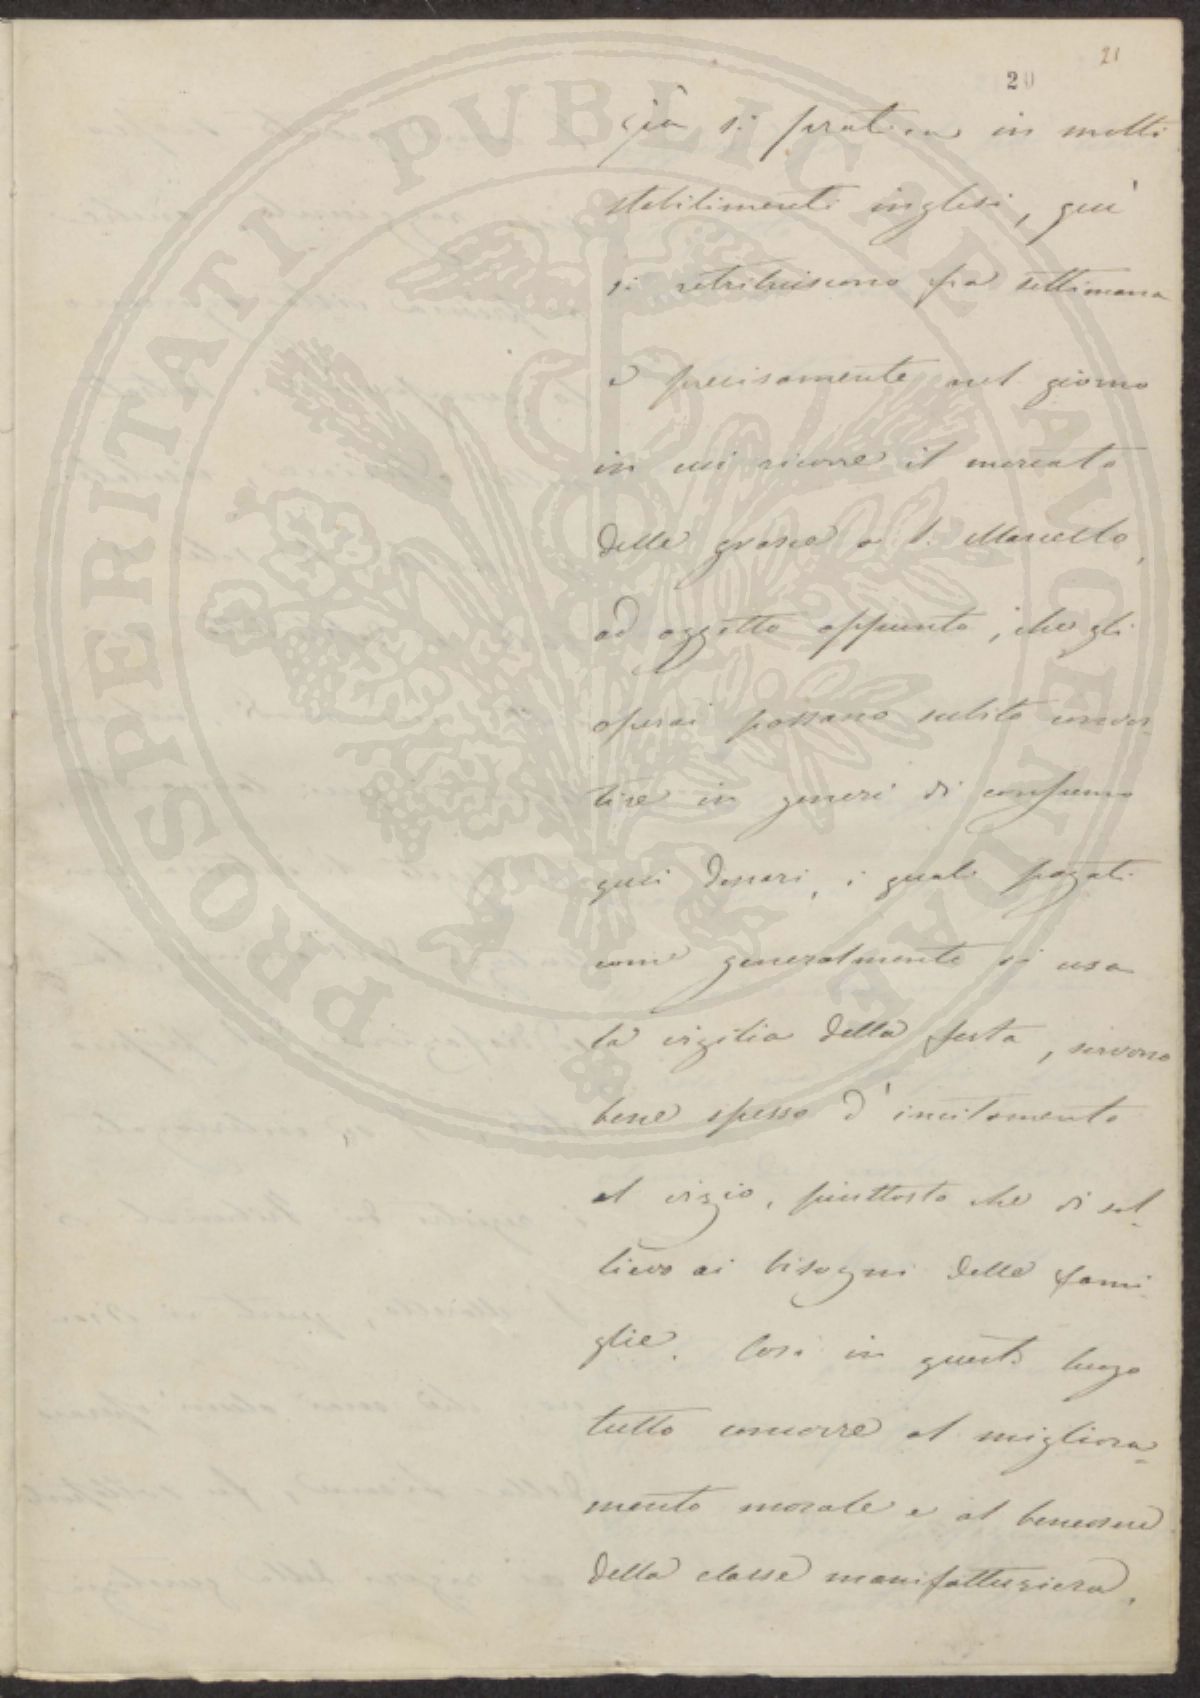 21
20
già si pratica in molti
stabilimenti inglesi, qui
si retribuiscono fra settimana
e precisamente nel giorno
in cui ricorre il mercato
delle grasce a S. Marcello,
ad oggetto appunto, che gli
operai possano subito conver-
tire in generi di consumo
quei denari, i quali pagati
come generalmente si usa
la vigilia della festa, servono
bene spesso d'incitamento
al vizio, piuttosto che di sol-
lievo ai bisogni delle fami-
glie. Così in questo luogo
tutto concorre al migliora-
mento morale e al benessere
della classe manifatturiera.
PROSPERITATI PVBLICAE AVGENDAE